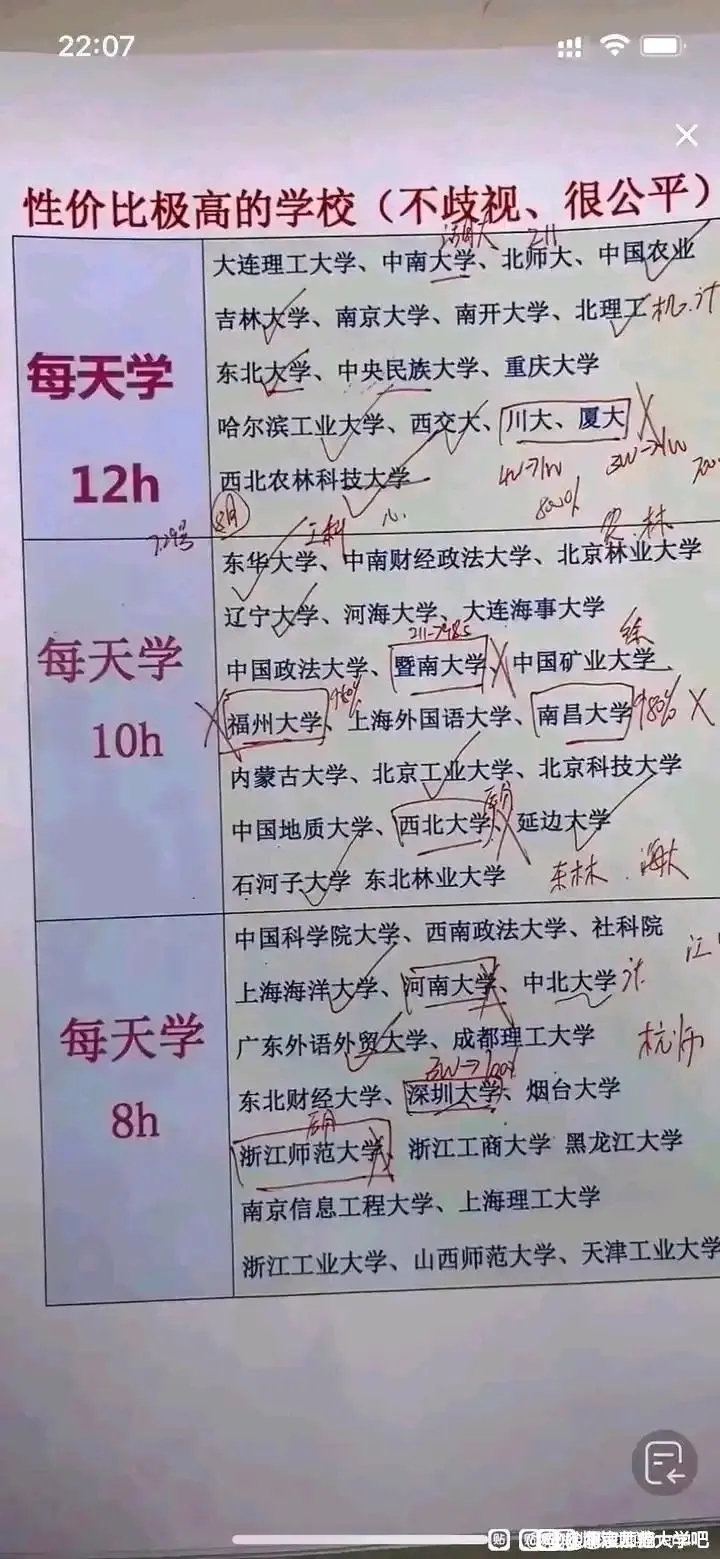 22:07
性价比极高的学校（不歧视、很公平）
211
每天学
12h
大连理工大学、中南大学、北师大、中国农业
吉林大学、南京大学、南开大学、北理工 机、计
东北大学、中央民族大学、重庆大学
哈尔滨工业大学、西交大、川大、厦大
西北农林科技大学
8月
7.29号
工科
农 林
每天学
10h
东华大学、中南财经政法大学、北京林业大学
辽宁大学、河海大学、大连海事大学
211→985
中国政法大学、暨南大学、中国矿业大学
福州大学、上海外国语大学、南昌大学
内蒙古大学、北京工业大学、北京科技大学
中国地质大学、西北大学、延边大学
石河子大学 东北林业大学 东林 海大
每天学
8h
中国科学院大学、西南政法大学、社科院
江
上海海洋大学、河南大学、中北大学 计
广东外语外贸大学、成都理工大学 杭师
东北财经大学、深圳大学、烟台大学
浙江师范大学、浙江工商大学 黑龙江大学
南京信息工程大学、上海理工大学
浙江工业大学、山西师范大学、天津工业大学